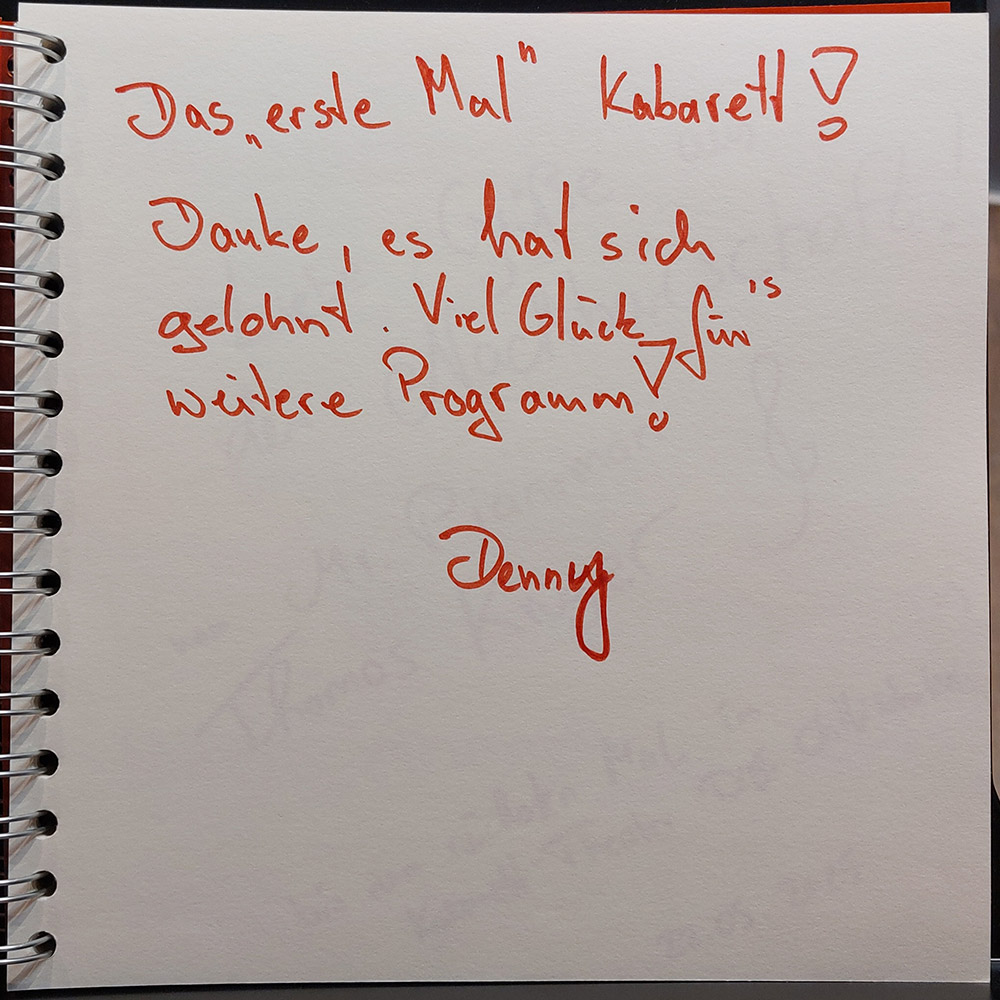 Das „erste Mal" Kabarett!
Danke, es hat sich
gelohnt. Viel Glück für's
weitere Programm!
Denny